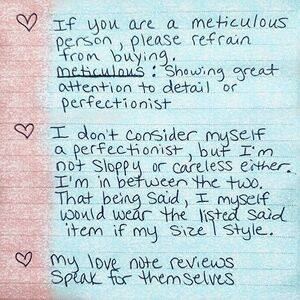 ♡ If you are a meticulous
person, please refrain
from buying.
meticulous: Showing great
attention to detail or
perfectionist
♡ I don't consider myself
a perfectionist, but I'm
not sloppy or careless either.
I'm in between the two.
That being said, I myself
would wear the listed said
item if my size | style.
♡ my love note reviews
speak for themselves